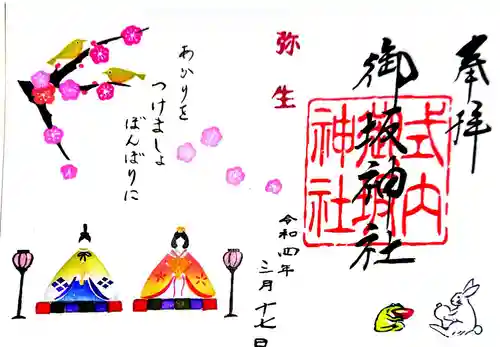 奉拝
式内
御坂
神社
御坂神社
弥生
令和四年
三月十七日
あかりを
つけましょ
ぼんぼりに